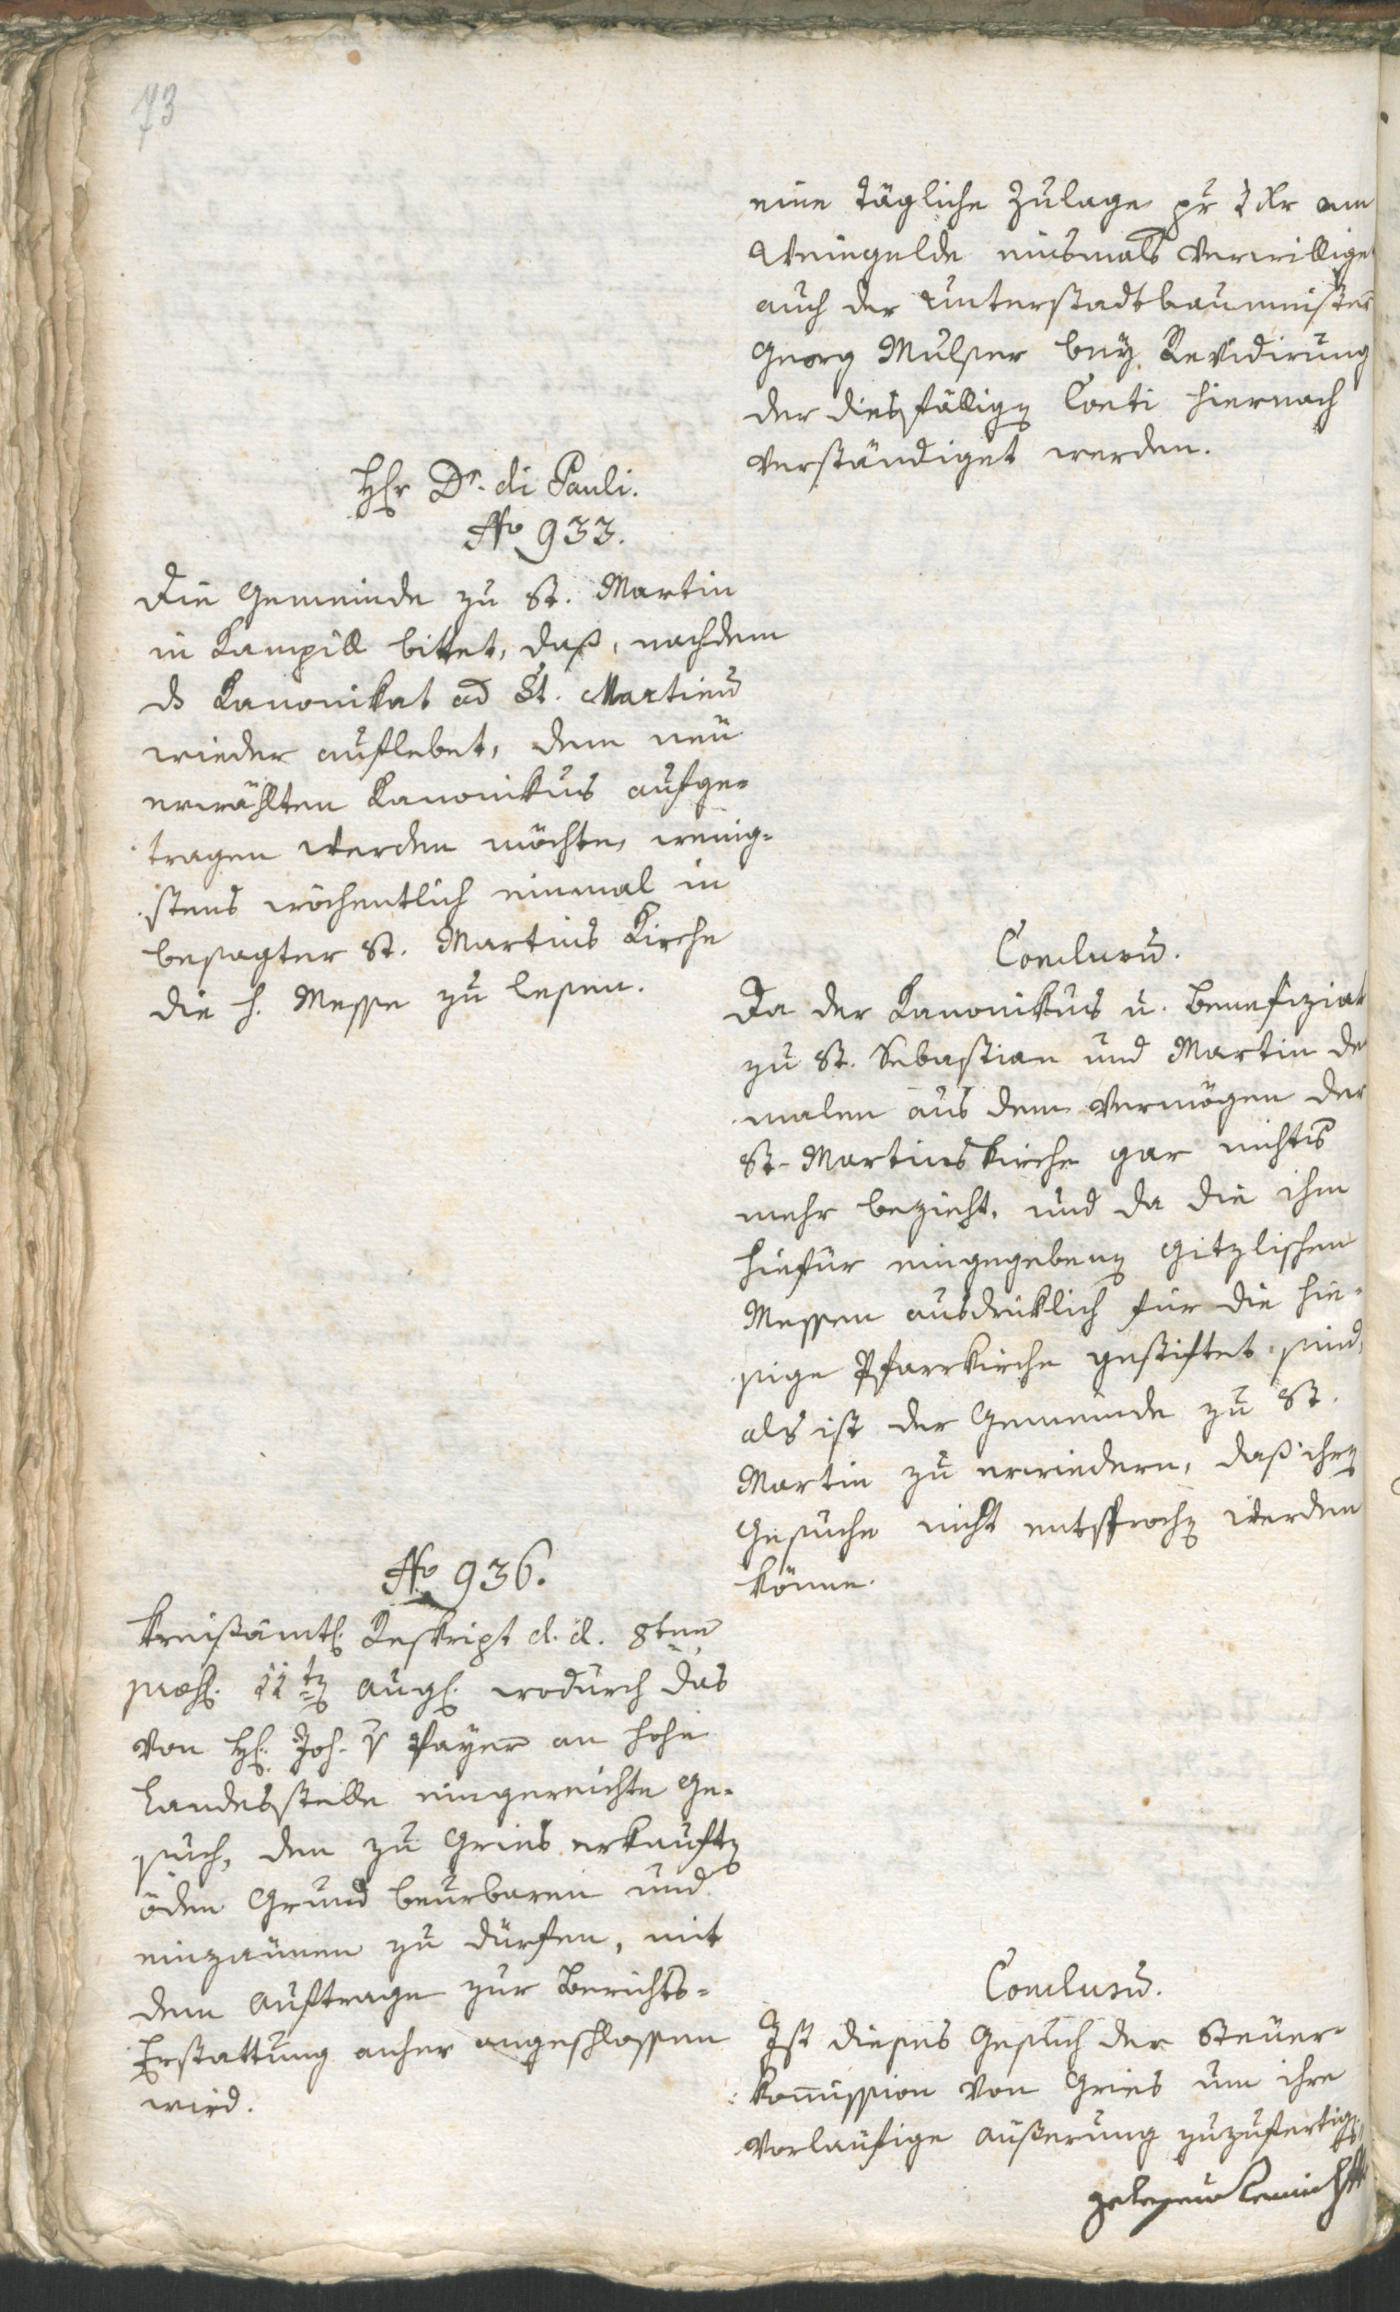 73
eine tägliche Zulage pr 3 xr am
Weingelde einsmals verwilliget
auch der Unterstadtbaumeister
Georg Mulser bey Revidirung
der diesfällig Conti hiernach
verständiget werden.
Hr Dr. di Pauli.
No 933.
Die Gemeinde zu St. Martin
in Kampill bittet, daß, nachdem
ds Kanonikat ad St. Martinū
wieder auflebet, dem neu
erwählten Kanonikus aufge-
tragen werden möchte, wenig-
stens wöchentlich einmal in
besagter St. Martins Kirche
die h. Messe zu lesen.
Conclusū.
Da der Kanonikus u. Benefiziat
zu St. Sebastian und Martin der
malen aus dem Vermögen der
St. Martinskirche gar nichts
mehr bezieht, und da die ihm
hiefür eingegeben Gitzlischen
Messen ausdrücklich für die hie-
sige Pfarrkirche gestiftet sind,
als ist der Gemeinde zu St.
Martin zu erwiedern, daß ihr
Gesuche nicht entsproch werden
könne.
No 936.
Kreisämtl. Reskript d. d. 8ten
præs. 11t Aug. wodurch das
von H. Joh. v Payer an hohe
Landesstelle eingereichte Ge-
such, den zu Gries erkauft
öden Grund beurbaren und
einzäunen zu dürfen, mit
dem Auftrage zur Berichts-
Erstattung anher angeschlossen
wird.
Conclusū.
Ist dieses Gesuch der Steuer-
kom̄ission von Gries um ihre
vorläufige Äußerung zuzufertig.
gelesen